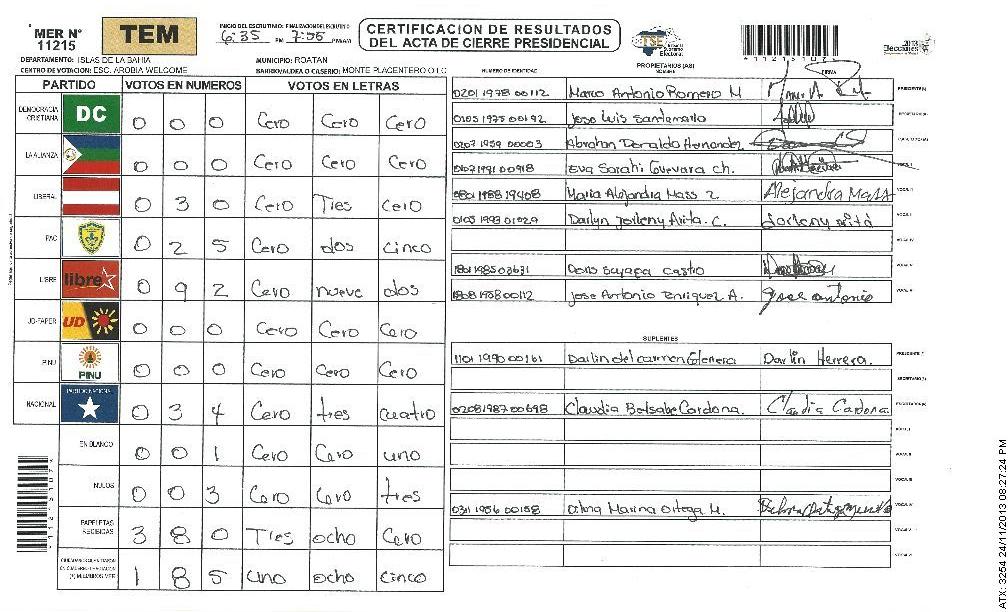 MER N° 11215
TEM
INICIO DEL ESCRUTINIO: FINALIZACION DEL ESCRUTINIO
6:35 PM 7:55 PM/AM
CERTIFICACION DE RESULTADOS
DEL ACTA DE CIERRE PRESIDENCIAL
TSE Tribunal Supremo Electoral
Elecciones 2013
DEPARTAMENTO: ISLAS DE LA BAHIA
MUNICIPIO: ROATAN
CENTRO DE VOTACION: ESC. AROBIA WELCOME
BARRIO/ALDEA O CASERIO: MONTE PLACENTERO O I.C
PARTIDO VOTOS EN NUMEROS VOTOS EN LETRAS
DEMOCRACIA CRISTIANA DC 0 0 0 Cero Cero Cero
LA ALIANZA 0 0 0 Cero Cero Cero
LIBERAL 0 3 0 Cero Tres Cero
PAC 0 2 5 Cero dos cinco
LIBRE libre 0 9 2 Cero nueve dos
UD-FAPER UD 0 0 0 Cero Cero Cero
PINU PINU 0 0 0 Cero Cero Cero
NACIONAL PARTIDO NACIONAL 0 3 4 Cero tres cuatro
EN BLANCO 0 0 1 Cero Cero uno
NULOS 0 0 3 Cero Cero tres
PAPELETAS RECIBIDAS 3 8 0 Tres ocho Cero
1 8 5 uno ocho cinco
PROPIETARIOS (AS)
NUMERO DE IDENTIDAD NOMBRE FIRMA
0201 1978 00112 Marco Antonio Romero M PRESIDENTE(A)
0105 1975 00192 Jose Luis Santamaria SECRETARIO(A)
0207 1959 00003 Abrahan Doraldo Hernandez
01071991 00918 Eva Sarahi Guevara ch.
0801 1988 19408 Maria Alejandra Mass Z Alejandra Mass
0105 1993 01029 Darlyn Jorleny Arita C.
1801198503631 Doris Suyapa Castro
1808 1958 00112 Jose Antonio Enriquez A. Jose antonio
SUPLENTES
1101 1990 00161 Darlin del carmen Darlin Herrera. PRESIDENTE
SECRETARIO(A)
0208198700698 Claudia Betsabe Cardona. Claudia Cardona
0311 1956 00158 Marina Ortega M.
ATX: 3254 24/11/2013 08:27:24 PM